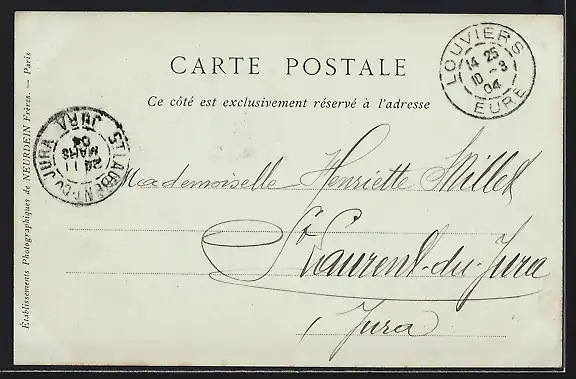 CARTE POSTALE
Ce côté est exclusivement réservé à l'adresse
LOUVIERS
14 25
10 - 3
04
EURE
ST LAURENT-DU-JURA
11
MARS
04
JURA
Mademoiselle Henriette Millet
St Laurent-du-Jura
Jura
Établissements Photographiques de NEURDEIN Frères. — Paris